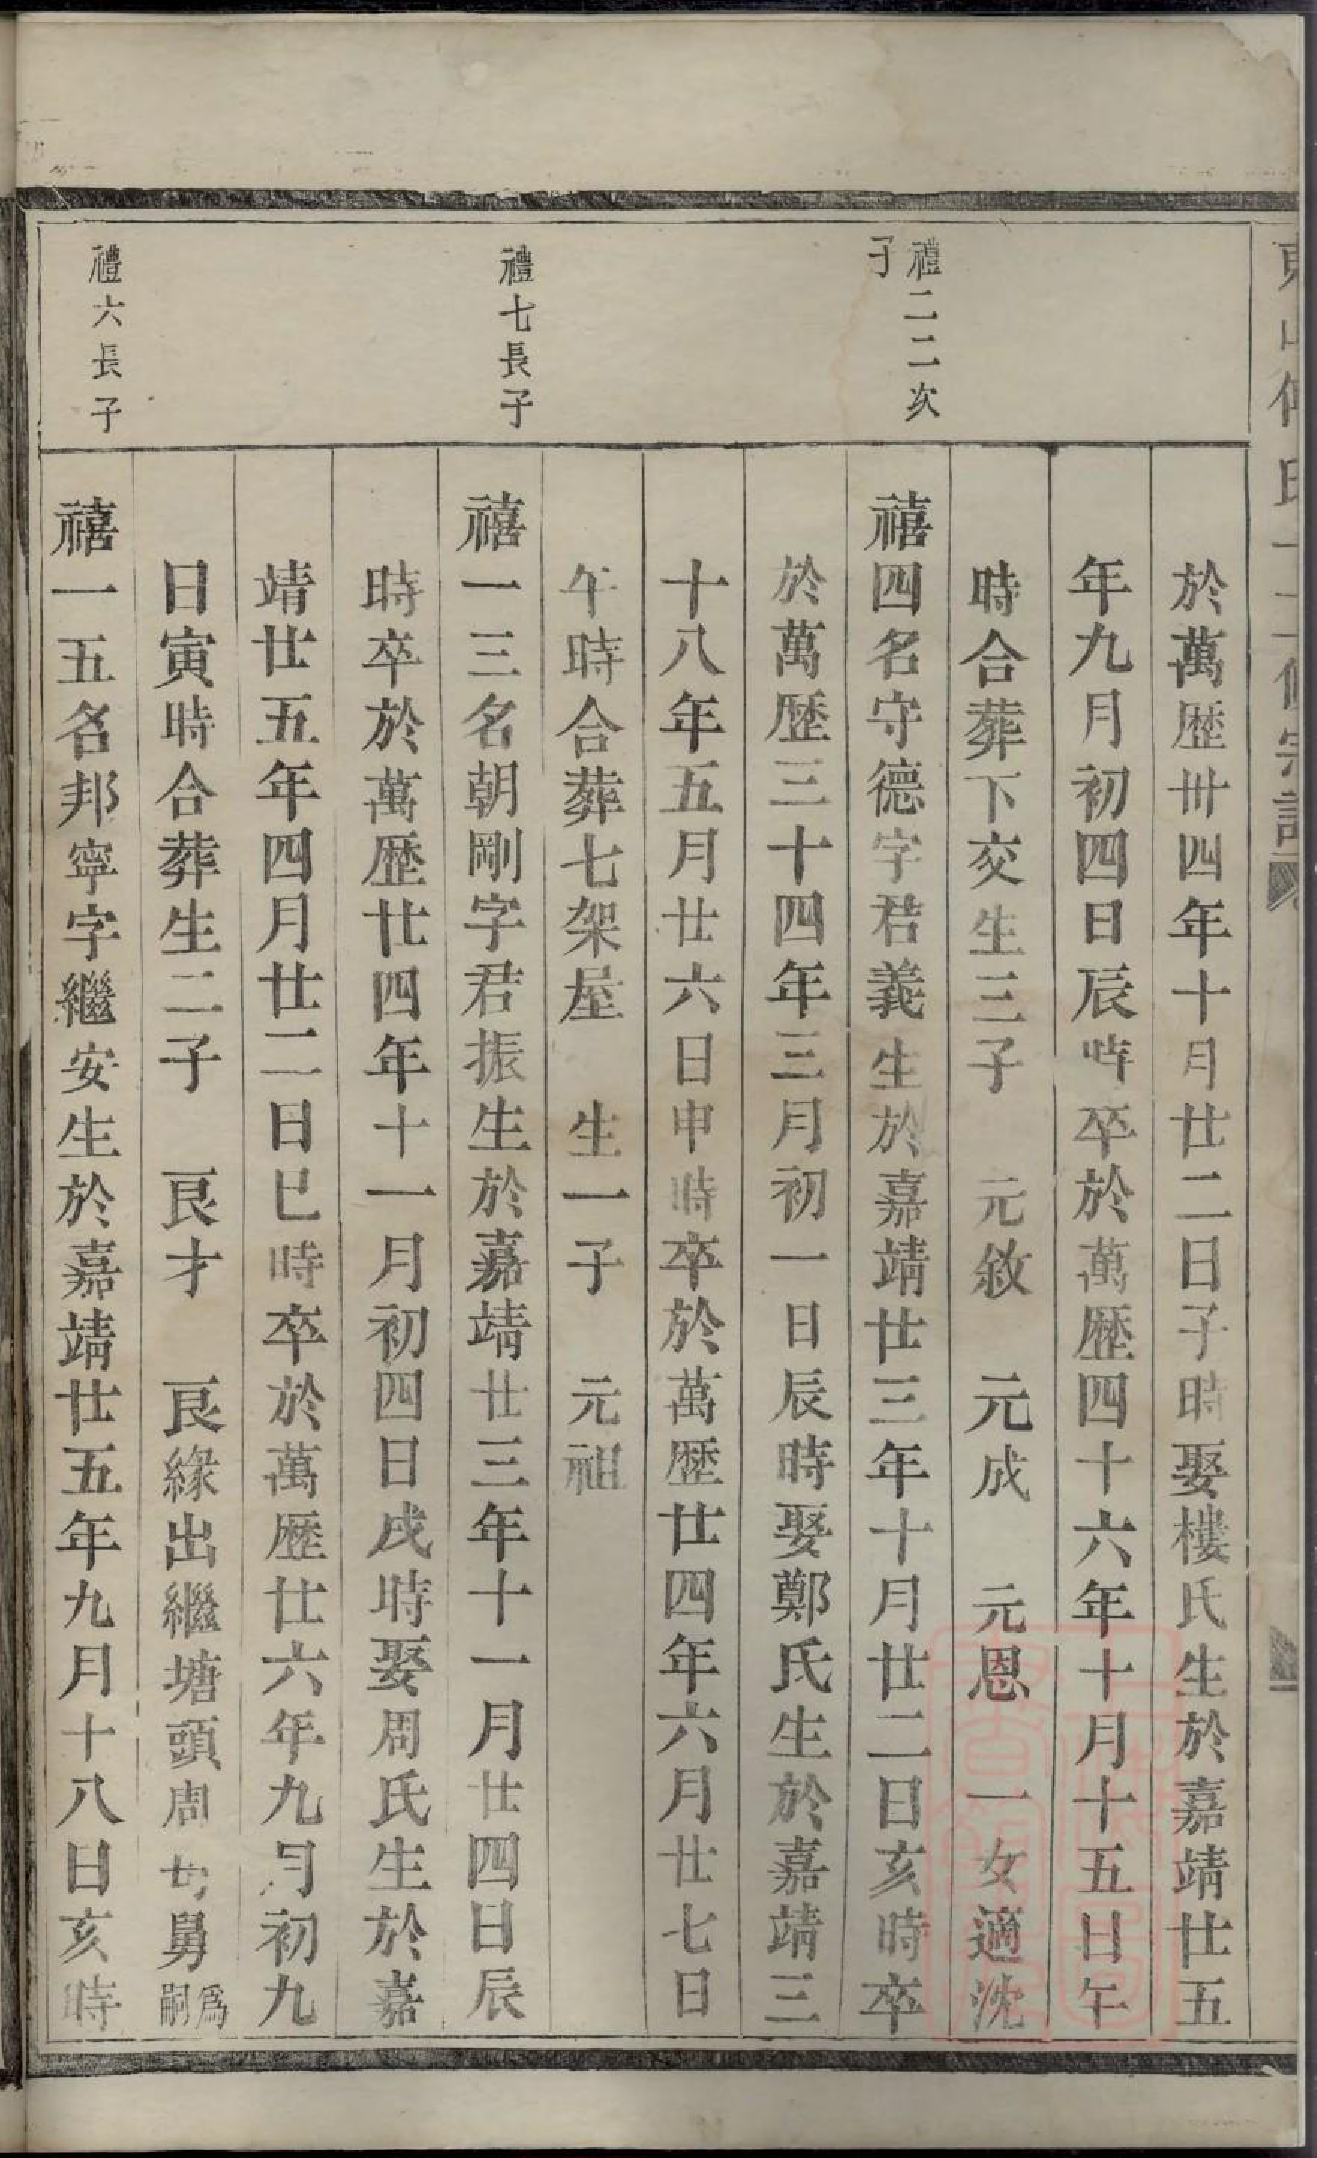 於萬歷卅四年十月廿二日子時娶樓氏生於嘉靖廿五
年九月初四日辰時卒於萬歷四十六年十月十五日午
時合葬下交生三子　元敘　元成　元恩　一女適沈
禮二二次
子
禧四名守德字君義生於嘉靖廿三年十月廿二日亥時卒
於萬歷三十四年三月初一日辰時娶鄭氏生於嘉靖三
十八年五月廿六日申時卒於萬歷廿四年六月廿七日
午時合葬七架屋　生一子　元祖
禮七長子
禧一三名朝剛字君振生於嘉靖廿三年十一月廿四日辰
時卒於萬歷廿四年十一月初四日戌時娶周氏生於嘉
靖廿五年四月廿二日巳時卒於萬歷廿六年九月初九
日寅時合葬生二子　良才　良緣出繼塘頭周母舅爲嗣
禮六長子
禧一五名邦寧字繼安生於嘉靖廿五年九月十八日亥時